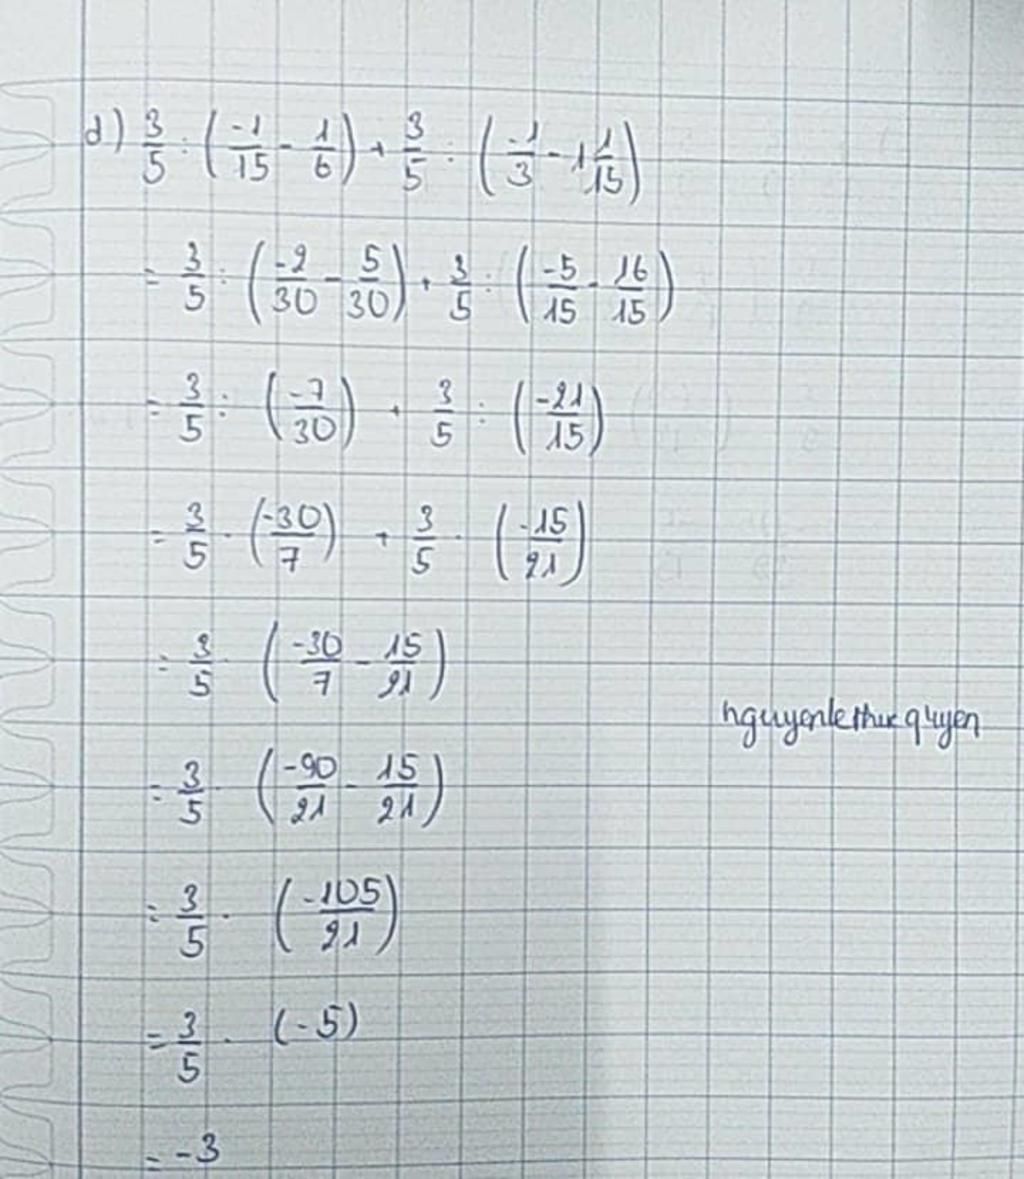 d) 3/5 : (-1/15 - 1/6) + 3/5 : (-1/3 - 1 1/15)
= 3/5 : (-2/30 - 5/30) + 3/5 : (-5/15 - 16/15)
= 3/5 : (-7/30) + 3/5 : (-21/15)
= 3/5 . (-30/7) + 3/5 . (-15/21)
= 3/5 . (-30/7 - 15/21)
nguyenlethucquyen
= 3/5 . (-90/21 - 15/21)
= 3/5 . (-105/21)
= 3/5 . (-5)
= -3